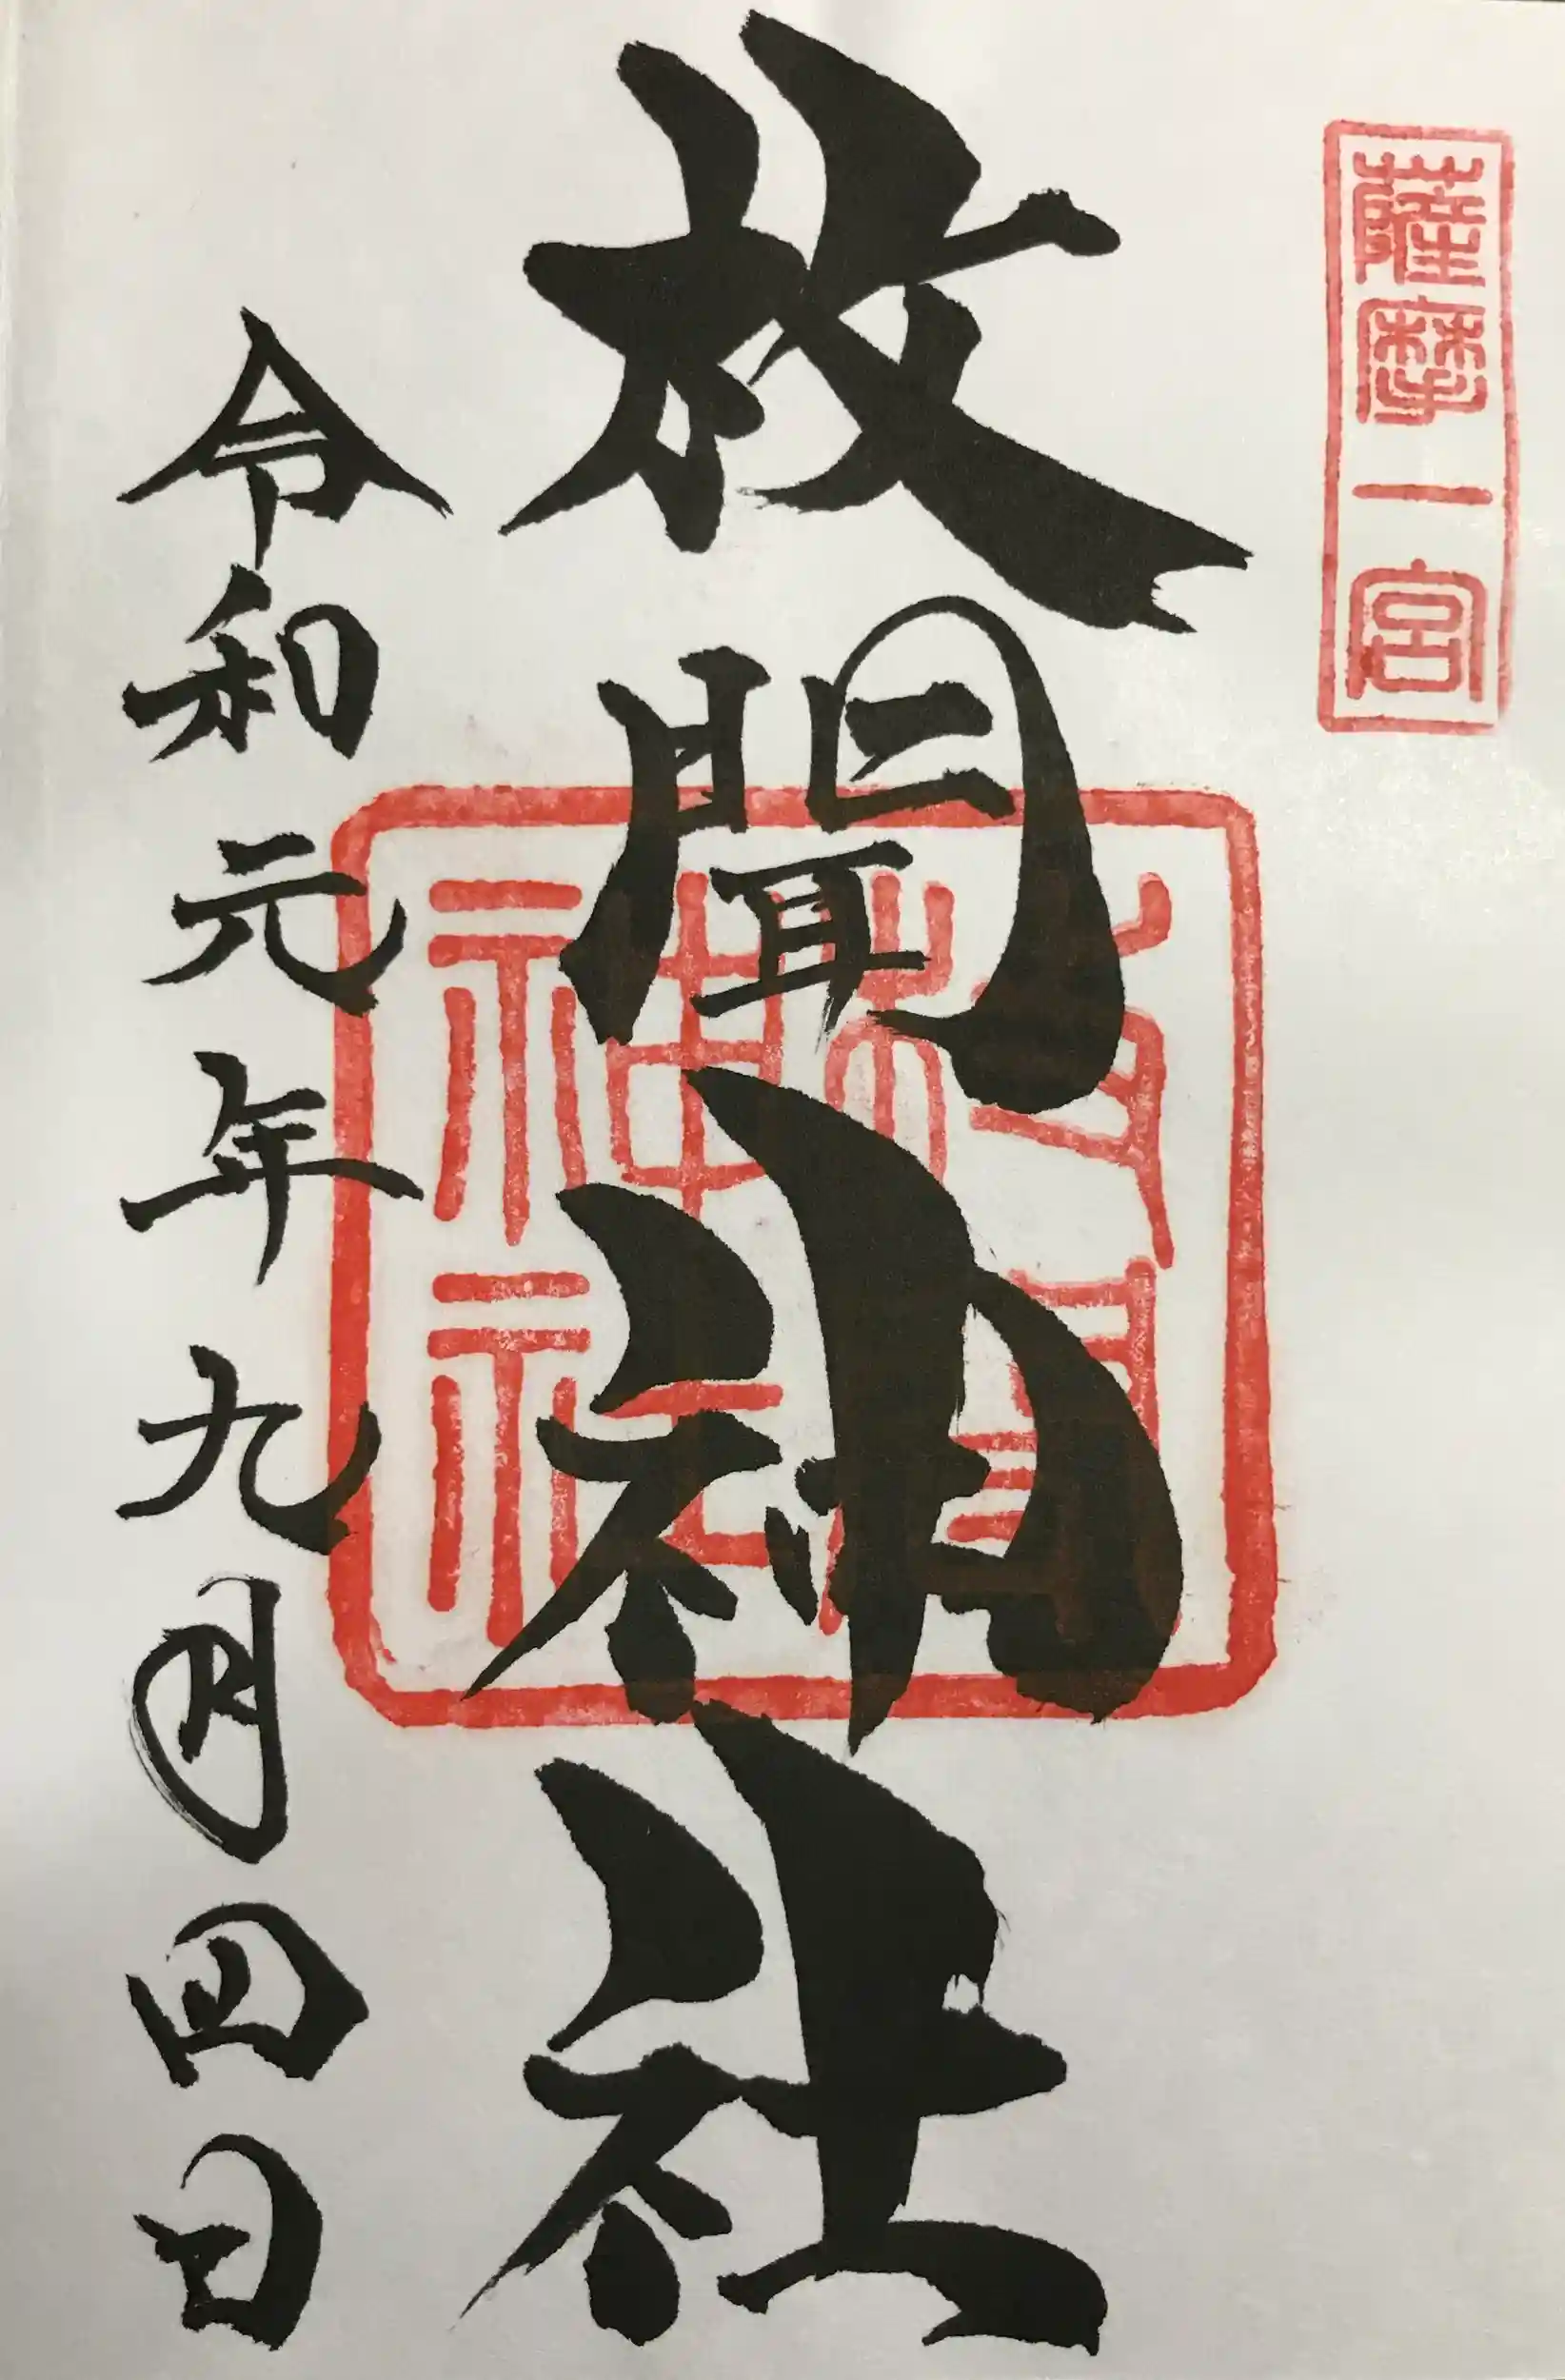 薩摩一宮
枚聞神社
令和元年九月四日
枚聞神社